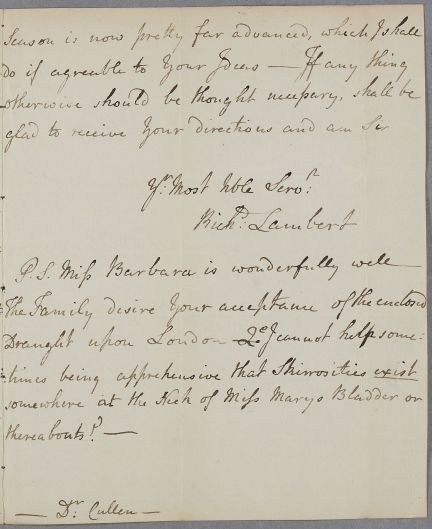 Season is now pretty far advanced, which I shall
do if agreable to Your Ideas — If any thing
otherwise should be thought necessary, shall be
glad to receive Your directions and am Sir
Yr. Most Hble Servt.
Richd. Lambert
P.S. Miss Barbara is wonderfully well
The Family desire Your acceptance of the enclosed
Draught upon London I cannot help some=
times being apprehensive that Skirrosities exist
somewhere at the Neck of Miss Marys Bladder or
thereabouts? —
— Dr. Cullen —